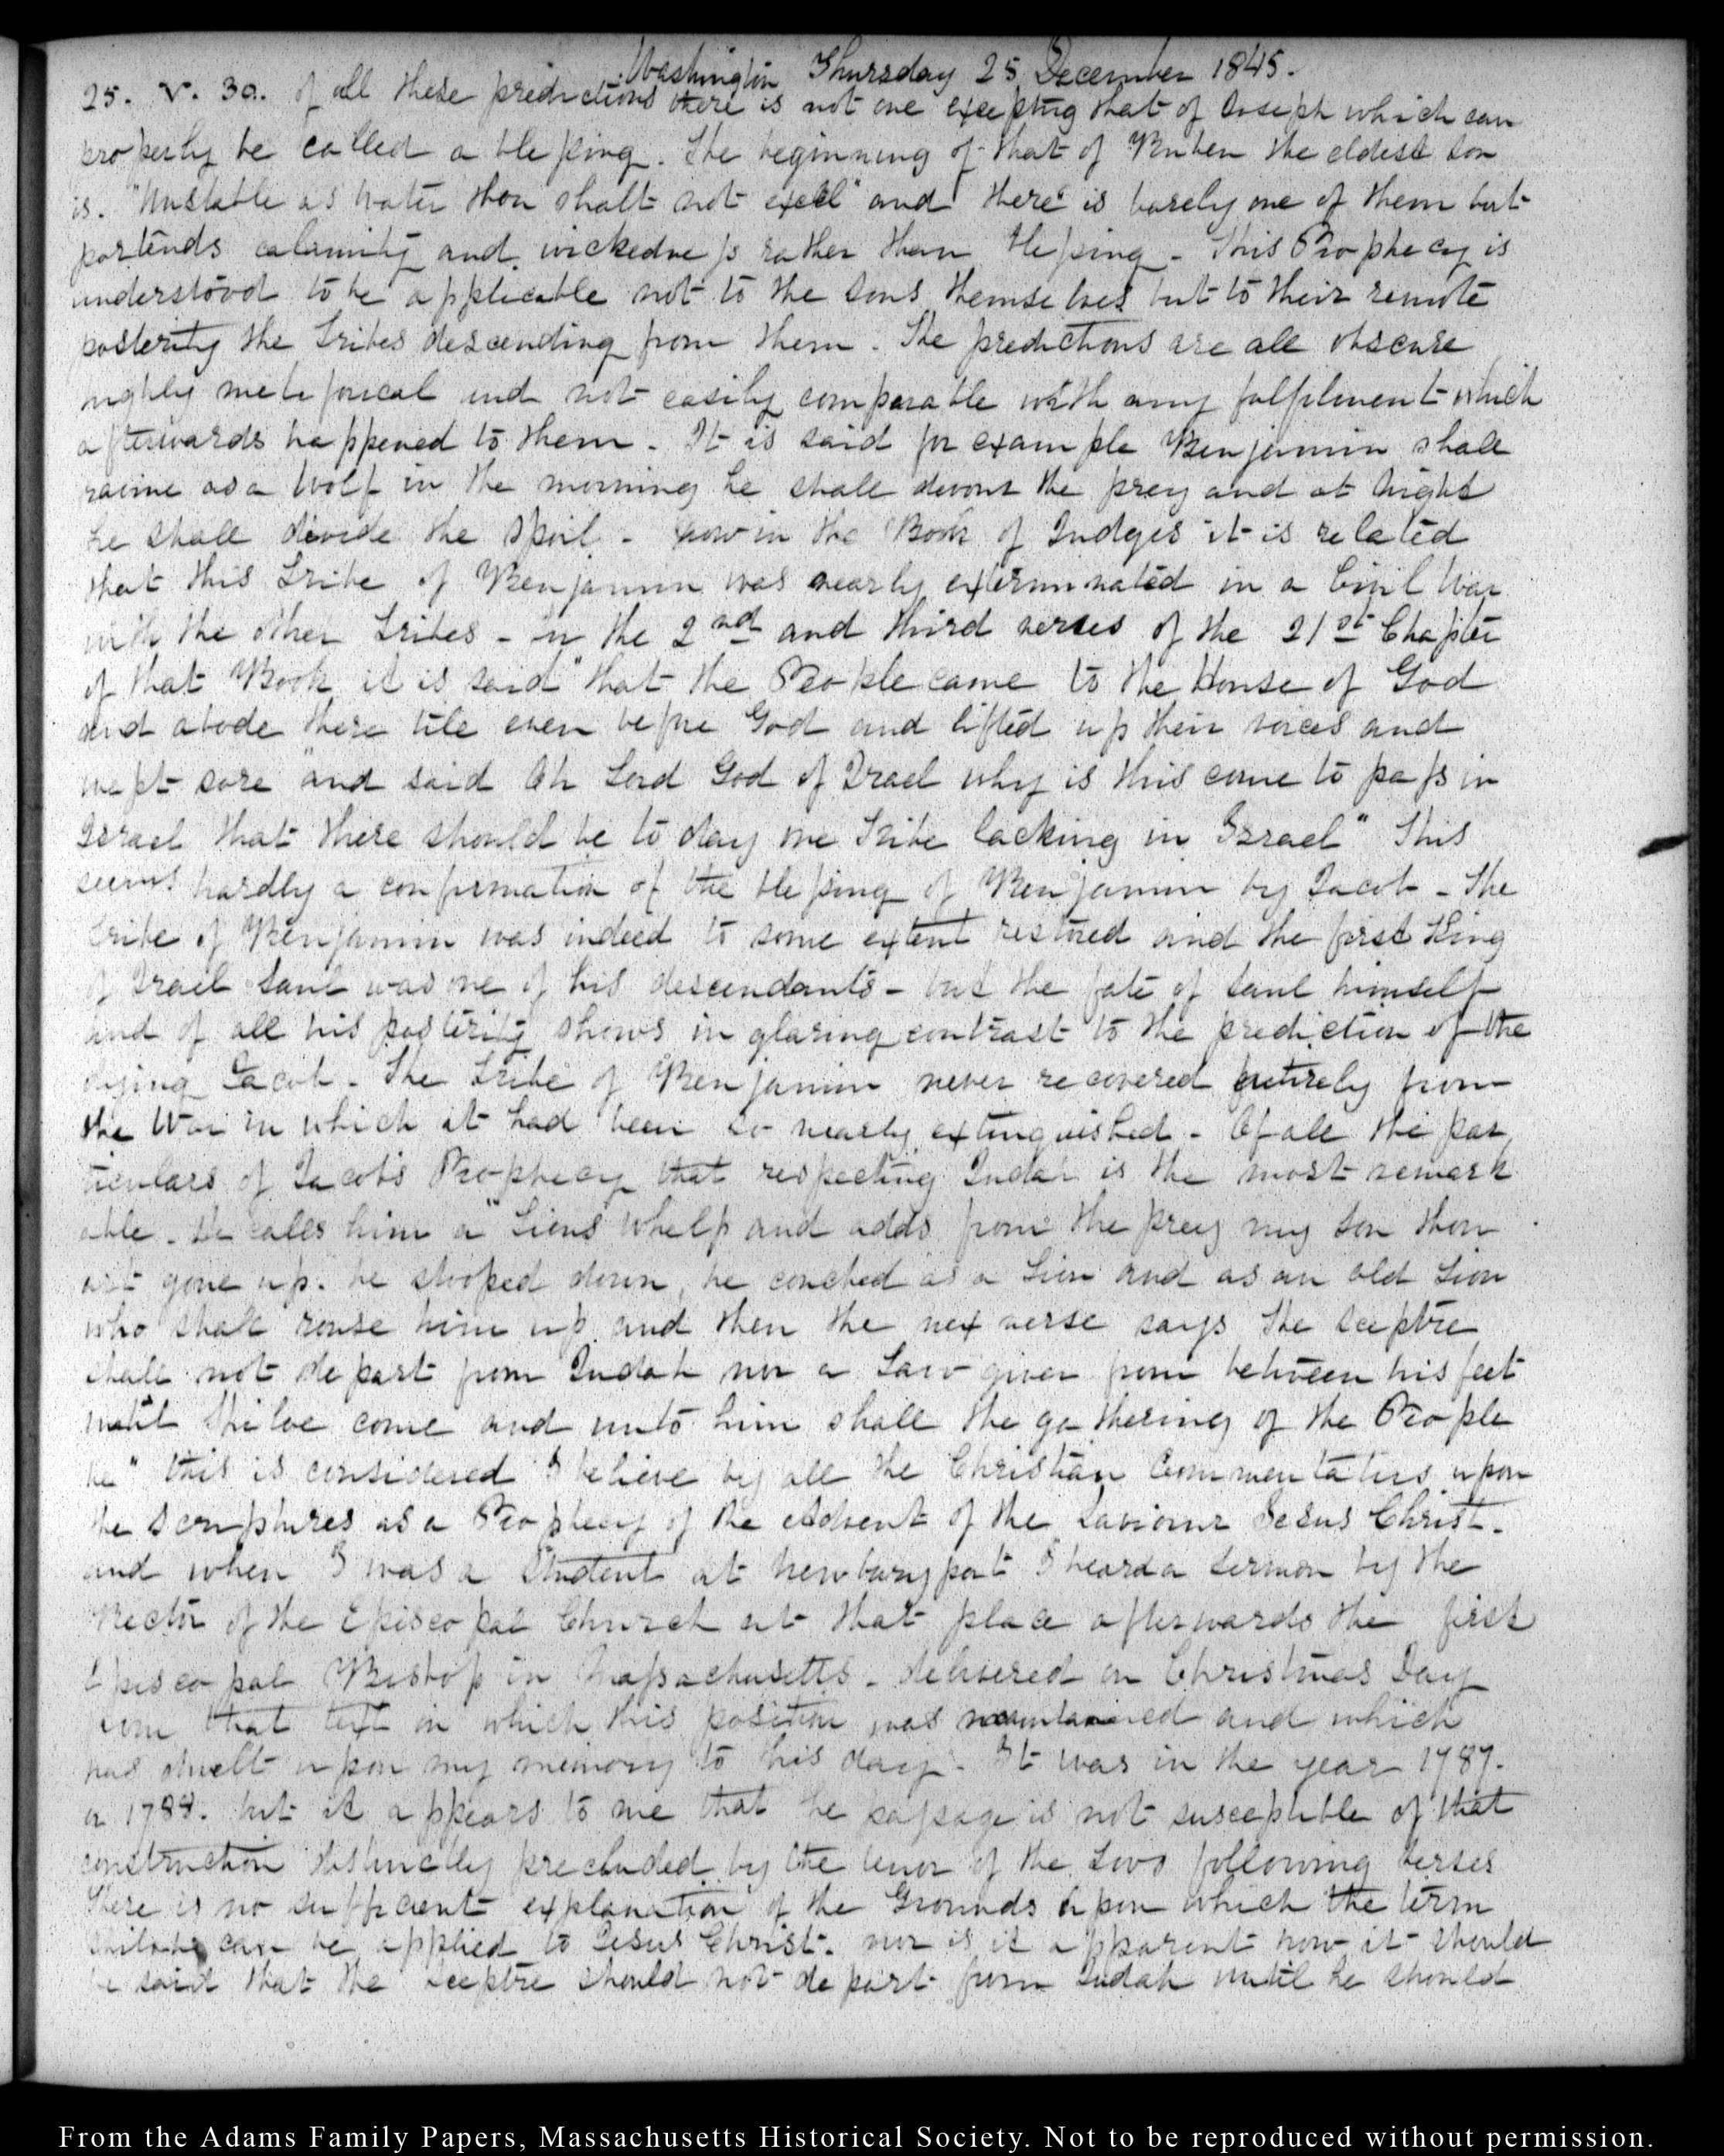 Washington Thursday 25 December 1845.
25. V. 30. of all these predictions there is not one excepting that of Joseph which can
properly be called a blessing. The beginning of that of Ruben the eldest son
is. "Unstable as Water thou shalt not excell" and there is barely one of them but
portends calamity and wickedness rather than blessing - This Prophecy is
understood to be applicable not to the sons themselves but to their remote
posterity the Tribes descending from them. The predictions are all obscure
highly metaforical and not easily comparable with any fulfilment which
afterwards happened to them. It is said for example Benjamin shall
ravine as a Wolf in the morning he shall devour the prey and at Night
he shall divide the spoil - now in the Book of Judges it is related
that this Tribe of Benjamin was nearly exterminated in a Civil War
with the other Tribes - in the 2nd and third verses of the 21st Chapter
of that Book it is said "that the People came to the House of God
and abode there till even before God and lifted up their voices and
wept sore" and said Oh Lord God of Israel why is this come to pass in
Israel that there should be to day one Tribe lacking in Israel" This
seems hardly a confirmation of the blessing of Benjamin by Jacob - The
Tribe of Benjamin was indeed to some extent restored and the first King
of Israel Saul was one of his descendants - but the fate of Saul himself
and of all his posterity shows in glaring contrast to the prediction of the
dying Jacob. The Tribe of Benjamin never recovered entirely from
the War in which it had been so nearly extinguished - Of all the par
ticulars of Jacobs Prophecy that respecting Judah is the most remark
able. He calls him a "Lions Whelp and adds from the prey my son thou
art gone up. he stooped down, he couched as a Lion and as an old Lion
who shall rouse him up and then the next verse says The Sceptre
shall not depart from Judah nor a Law giver from between his feet
until Shiloe come and unto him shall the gathering of the People
be" this is considered I believe by all the Christian Commentators upon
the Scriptures as a Prophecy of the Advent of the Saviour Jesus Christ.
and when I was a Student at Newburyport I heard a Sermon by the
Rector of the Episcopal Church at that place afterwards the first
Episcopal Bishop in Massachusetts - delivered on Christmas Day
from that text in which this position was maintained and which
has dwelt upon my memory to this day - It was in the year 1787.
or 1788. but it appears to me that the passage is not susceptible of that
construction distinctly precluded by the tenor of the two following verses
There is no sufficient explanation of the Grounds upon which the term
can be applied to Jesus Christ. nor is it apparent how it should
be said that the Sceptre should not depart from Judah until he should
From the Adams Family Papers, Massachusetts Historical Society. Not to be reproduced without permission.